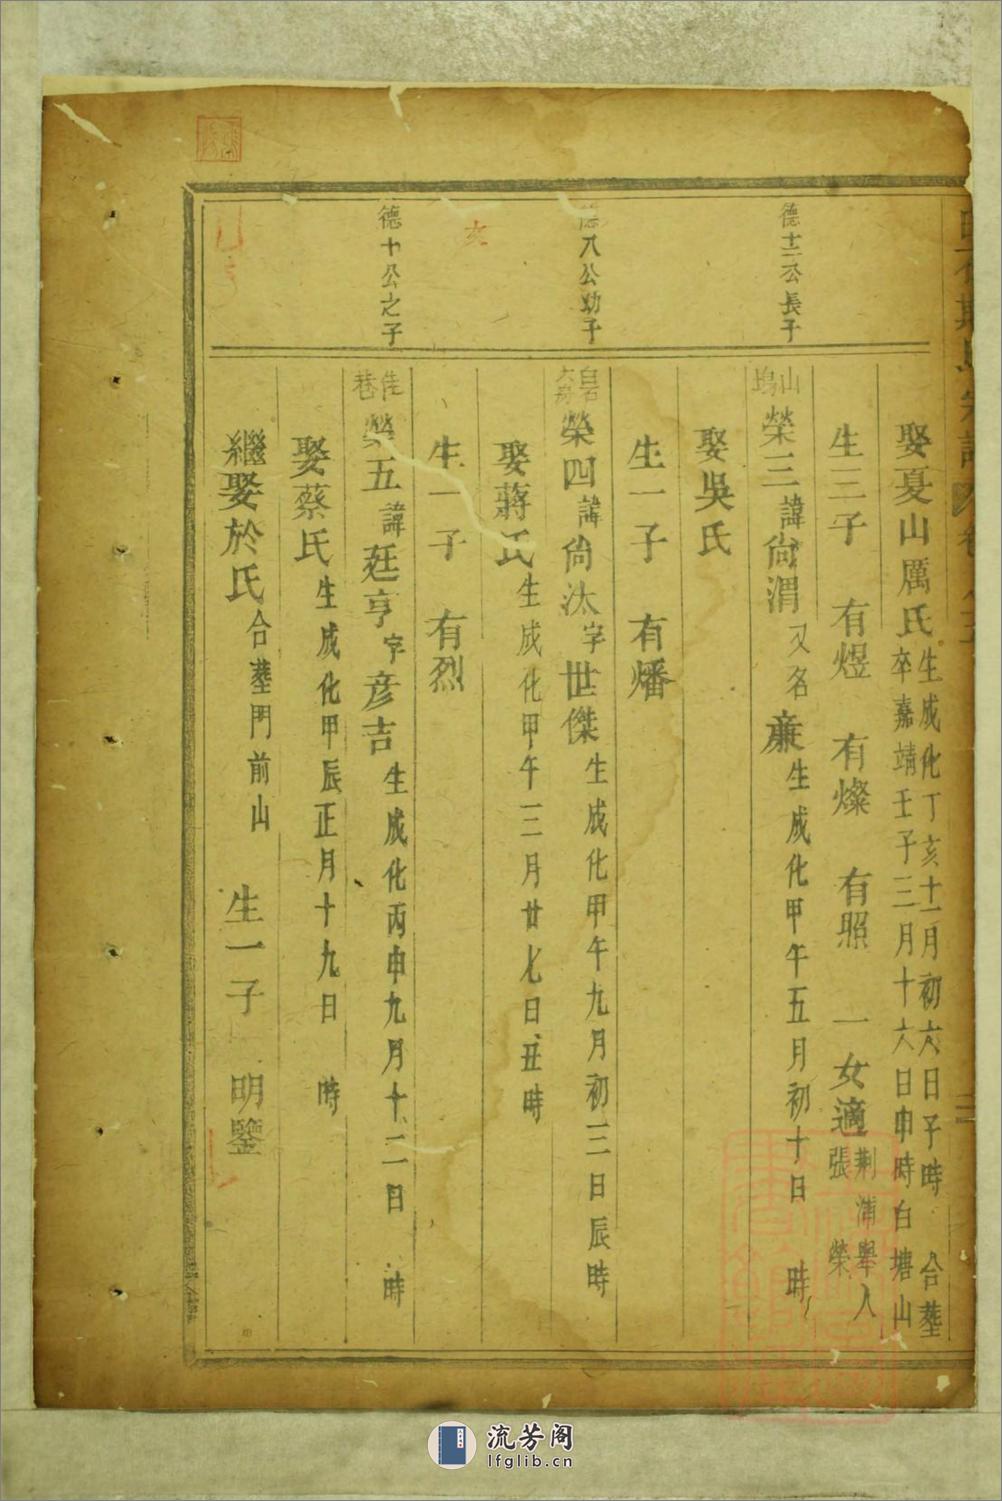 娶夏山厲氏生成化丁亥十一月初六日子時 合塟
卒嘉靖壬子三月十六日申時白塘山
生三子 有煜 有燦 有照 一女適荆浦舉人
張榮
德十二公長子
山塢
榮三諱尙渭又名亷生成化甲午五月初十日 時
娶吳氏
生一子 有燔
德八公幼子
白石
榮四諱尙汰字世傑生成化甲午九月初三日辰時
娶蔣氏生成化甲午三月廿七日丑時
生一子 有烈
德十公之子
佳巷
榮五諱廷亨字彦吉生成化丙申九月十二日 時
娶蔡氏生成化甲辰正月十九日 時
繼娶於氏合塟門前山 生一子 明鑒
流芳阁
lfglib.cn